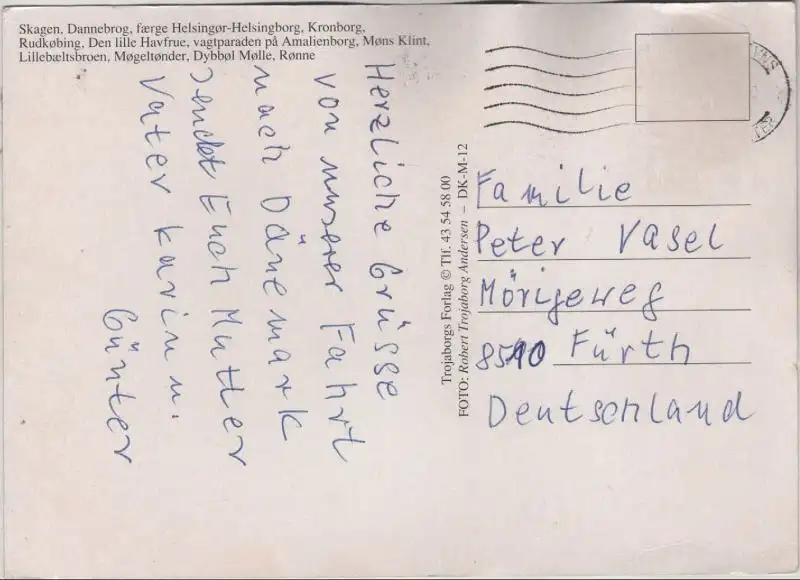 Skagen, Dannebrog, færge Helsingør-Helsingborg, Kronborg,
Rudkøbing, Den lille Havfrue, vagtparaden på Amalienborg, Møns Klint,
Lillebæltsbroen, Møgeltønder, Dybbøl Mølle, Rønne
Herzliche Grüsse
von unserer Fahrt
nach Dänemark
sendet Euch Mutter
Vater Karin u.
Günter
Trojaborgs Forlag © Tlf. 43 54 58 00
FOTO: Robert Trojaborg Andersen – DK-M-12
Familie
Peter Vasel
8510 Fürth
Deutschland